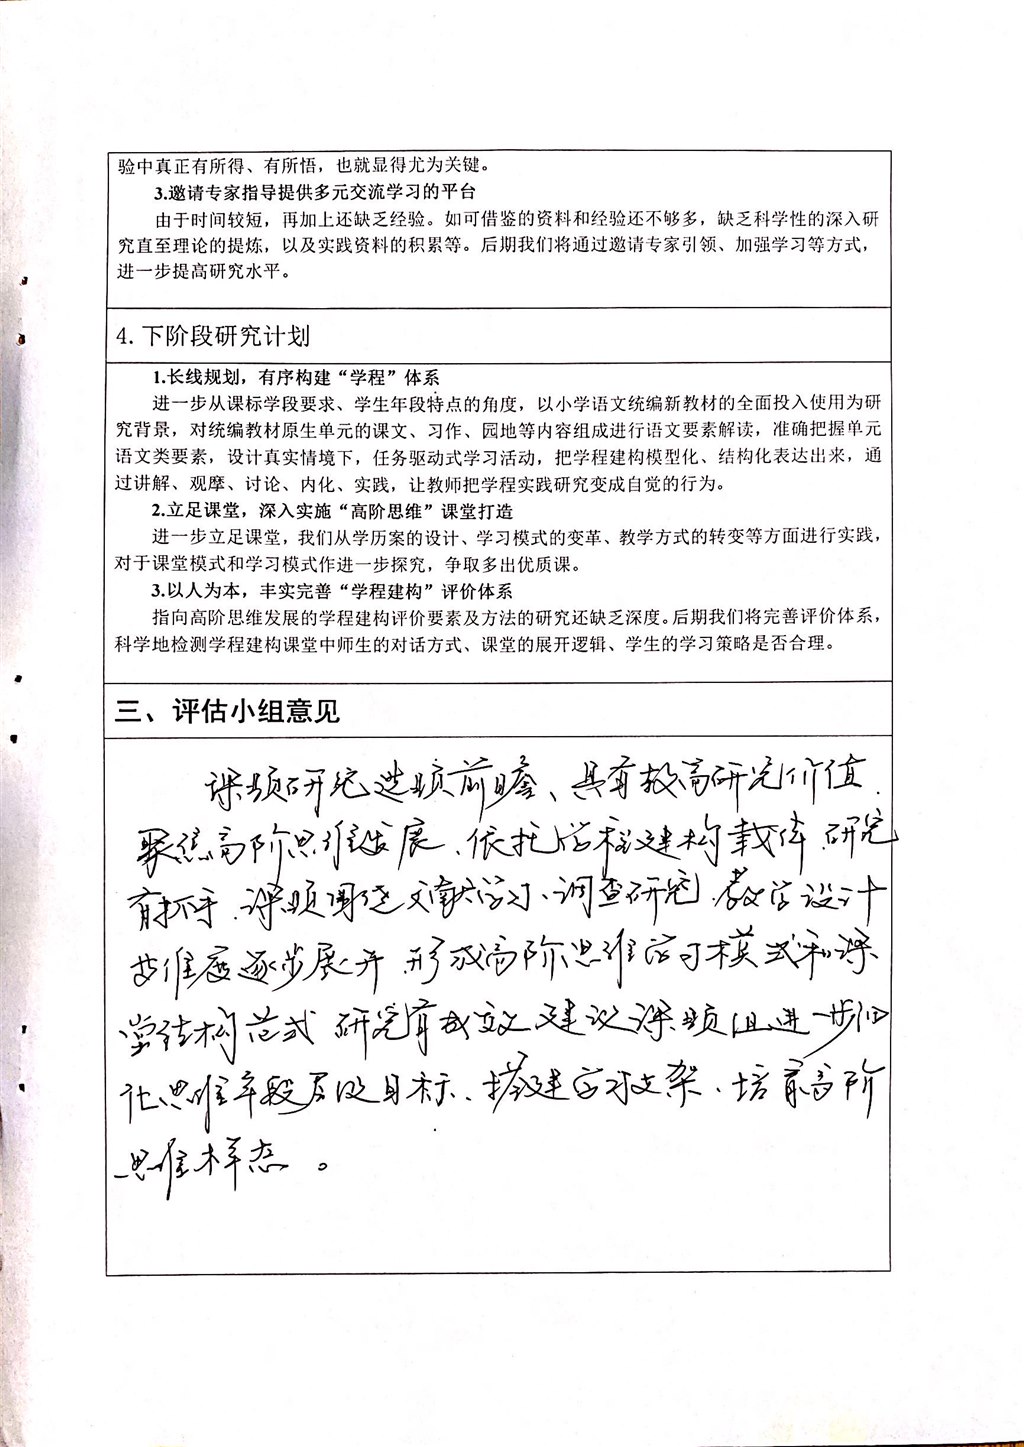 验中真正有所得、有所悟，也就显得尤为关键。
3.邀请专家指导提供多元交流学习的平台
由于时间较短，再加上还缺乏经验。如可借鉴的资料和经验还不够多，缺乏科学性的深入研
究直至理论的提炼，以及实践资料的积累等。后期我们将通过邀请专家引领、加强学习等方式，
进一步提高研究水平。
4.下阶段研究计划
1.长线规划，有序构建“学程”体系
进一步从课标学段要求、学生年段特点的角度，以小学语文统编新教材的全面投入使用为研
究背景，对统编教材原生单元的课文、习作、园地等内容组成进行语文要素解读，准确把握单元
语文类要素，设计真实情境下，任务驱动式学习活动，把学程建构模型化、结构化表达出来，通
过讲解、观摩、讨论、内化、实践，让教师把学程实践研究变成自觉的行为。
2.立足课堂，深入实施“高阶思维”课堂打造
进一步立足课堂，我们从学历案的设计、学习模式的变革、教学方式的转变等方面进行实践，
对于课堂模式和学习模式作进一步探究，争取多出优质课。
3.以人为本，丰实完善“学程建构”评价体系
指向高阶思维发展的学程建构评价要素及方法的研究还缺乏深度。后期我们将完善评价体系，
科学地检测学程建构课堂中师生的对话方式、课堂的展开逻辑、学生的学习策略是否合理。
三、评估小组意见
课题研究选题前瞻、具有较高研究价值.
聚焦高阶思维发展、依托学程建构载体.研究
有抓手.课题围绕文献学习、调查研究.教学设计
等维度逐步展开.形成高阶思维学习模式和课
堂结构范式.研究有成效.建议课题组进一步细
化思维年段目标、搭建学习支架、培育高阶
思维样态。